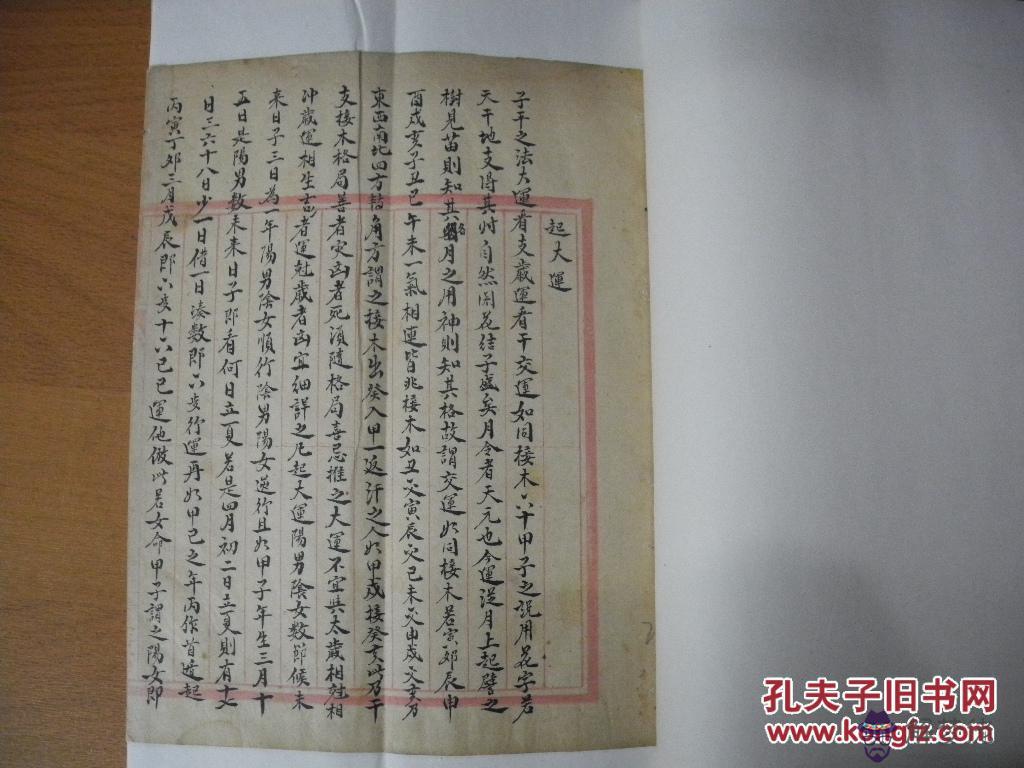 起大運
子平之法大運看支歲運看干交運如同接木六十甲子之說用花字若
天干地支得其时自然開花結子盛矣月令者天元也今運從月上起譬之
樹見苗則知其名月之用神則知其格故謂交運如同接木若寅卯辰申
酉戌亥子丑巳午未一氣相連皆非接木如丑交寅辰交巳未交申戌交亥乃
東西南北四方轉角方謂之接木出癸入甲一返汗之人如甲戌接癸亥此乃干
支接木格局善者灾凶者死須隨格局喜忌推之大運不宜與太歲相尅相
冲歲運相生吉者運尅歲者凶宜細詳之凡起大運陽男陰女數節候未
来日子三日為一年陽男陰女順行陰男陽女逆行且如甲子年生三月十
五日是陽男数未来日子即看何日立夏若是四月初二日立夏則有十七
日三六十八日少一日借一日湊數即六歲行運再如甲己之年丙作首遁起
丙寅丁卯三月戊辰即六歲十六己巳運他倣此若女命甲子謂之陽女即
孔夫子旧书网
www.kongfz.com